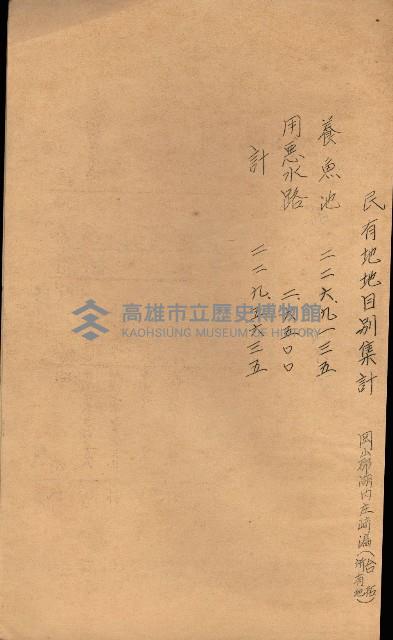 民有地地目別集計
岡山郡湖内庄崎漏(台拓済有地)
養魚池 二二六、九一三五
用悪水路 二、六五〇〇
計 二二九、五六三五
高雄市立歷史博物館
KAOHSIUNG MUSEUM OF HISTORY